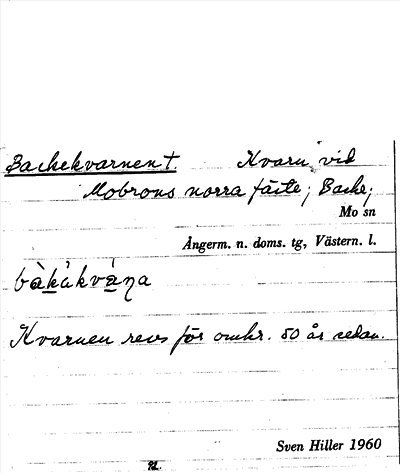 Backekvarnen †. Kvarn vid
Mobrons norra fäste; Backe;
Mo sn
Ångerm. n. doms. tg, Västern. l.
bàkàkvàna
Kvarnen revs för omkr. 50 år sedan.
Sven Hiller 1960